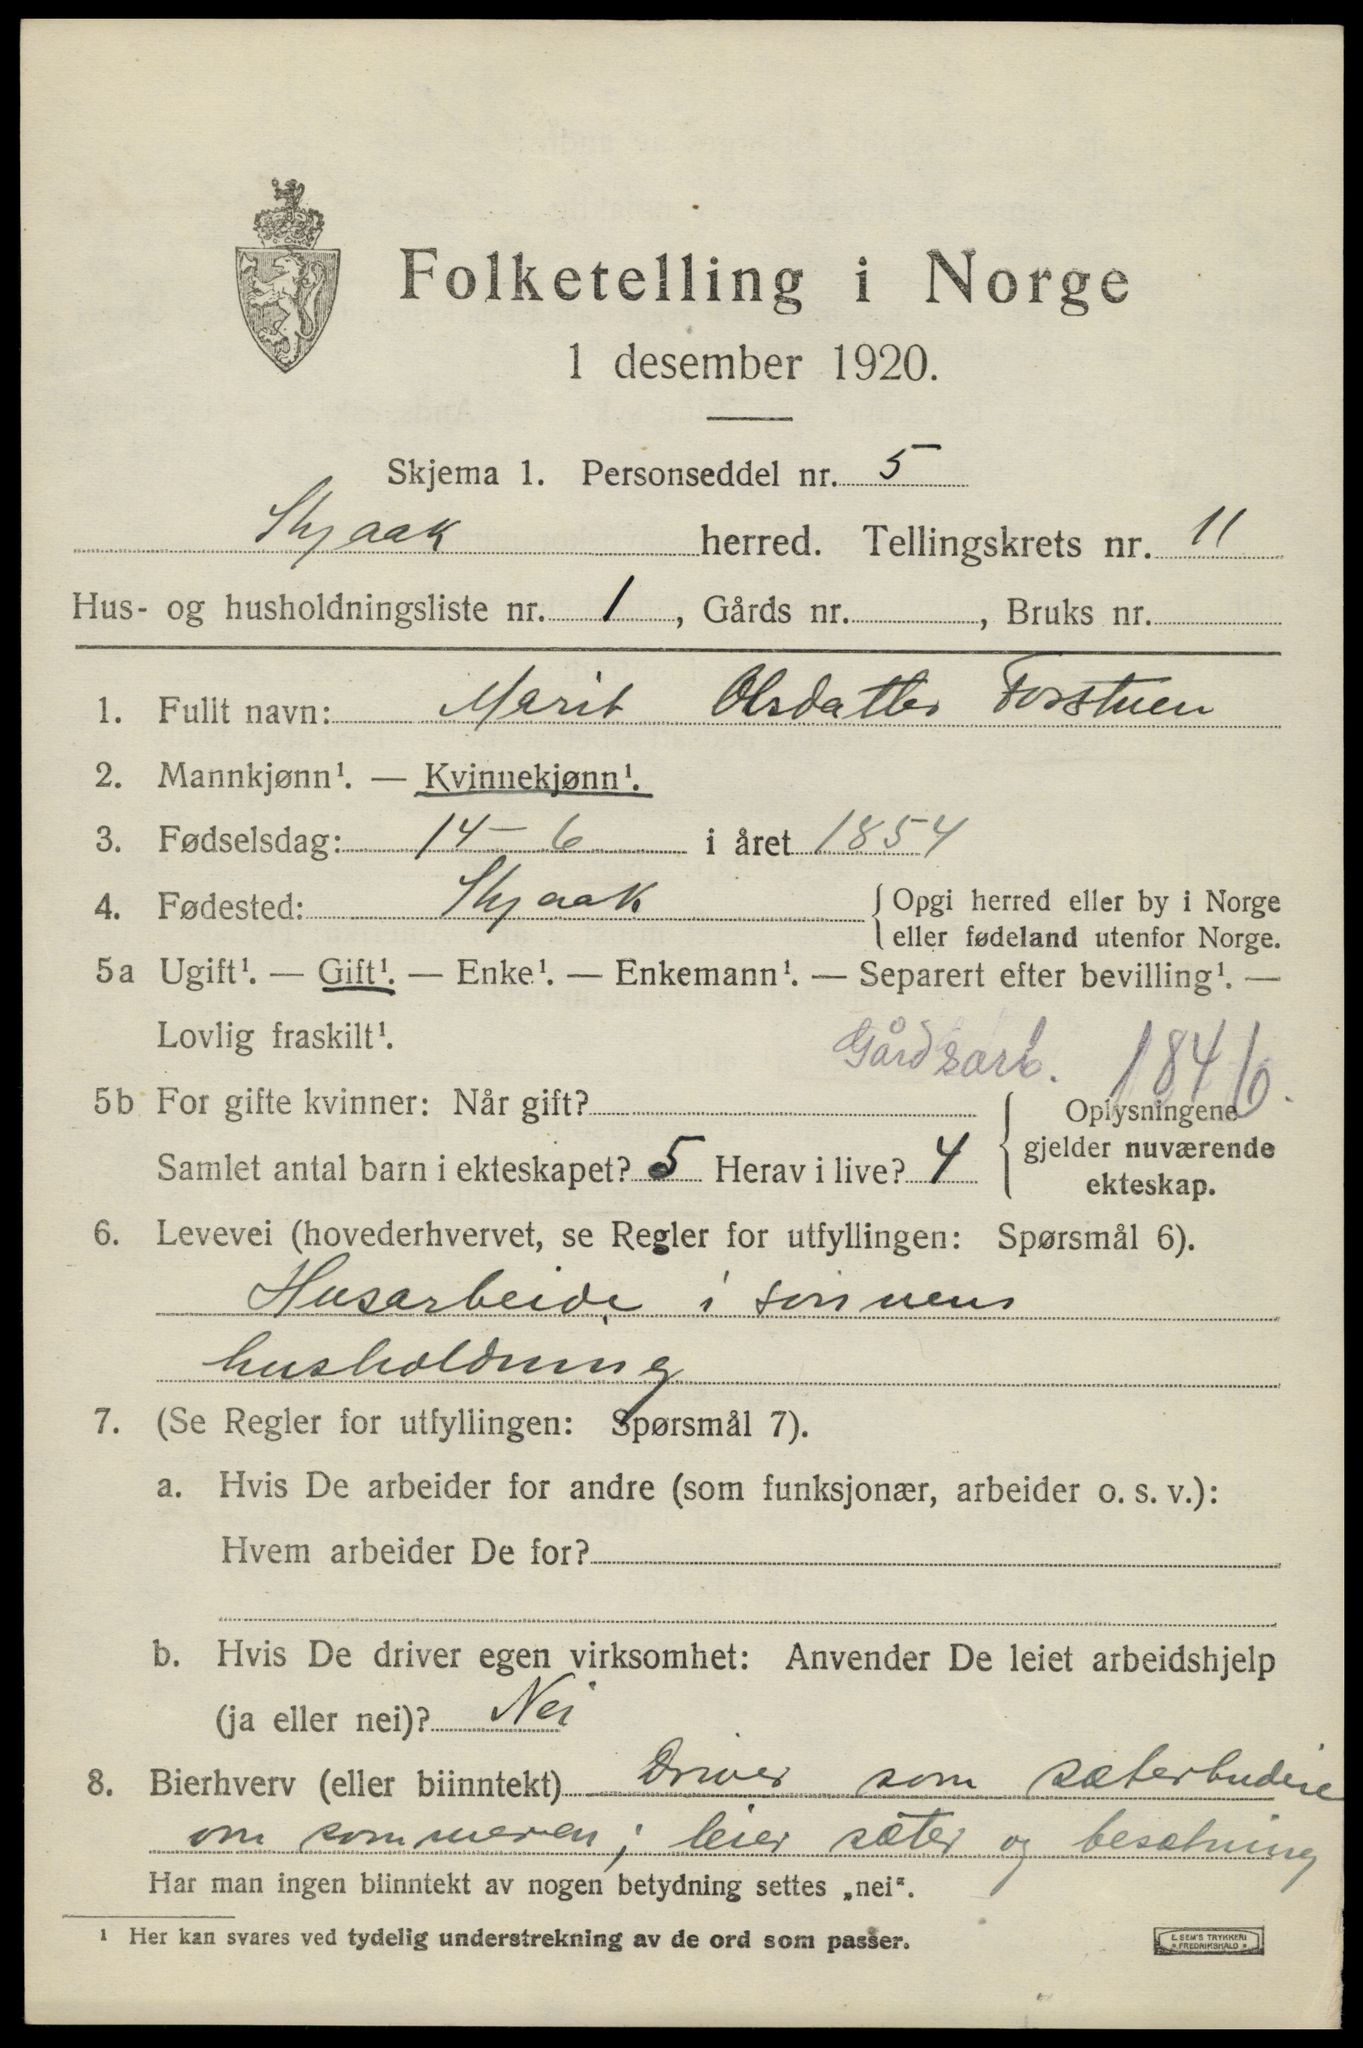 Folketelling i Norge
1 desember 1920.
Skjema 1. Personseddel nr. 5
Skjaak herred. Tellingskrets nr. 11
Hus- og husholdningsliste nr. 1, Gårds nr. , Bruks nr.
1. Fullt navn: Marit Olsdatter Forstuen
2. Mannkjønn¹. — Kvinnekjønn¹.
3. Fødselsdag: 14 - 6 i året 1854
4. Fødested: Skjaak { Opgi herred eller by i Norge
eller fødeland utenfor Norge.
5a Ugift¹. — Gift¹. — Enke¹. — Enkemann¹. — Separert efter bevilling¹. —
Lovlig fraskilt¹.
Gårdsarb. 1846.
5b For gifte kvinner: Når gift? { Oplysningene
gjelder nuværende
Samlet antal barn i ekteskapet? 5 Herav i live? 4
ekteskap.
6. Levevei (hovederhvervet, se Regler for utfyllingen: Spørsmål 6).
Husarbeide i sønnens
husholdning
7. (Se Regler for utfyllingen: Spørsmål 7).
a. Hvis De arbeider for andre (som funksjonær, arbeider o. s. v.):
Hvem arbeider De for?
b. Hvis De driver egen virksomhet: Anvender De leiet arbeidshjelp
(ja eller nei)? Nei
8. Bierhverv (eller biinntekt) Driver som sæterbudeie
om sommeren; leier sæter og besætning
Har man ingen biinntekt av nogen betydning settes „nei".
¹ Her kan svares ved tydelig understrekning av de ord som passer.
E. SEM'S TRYKKERI
FREDRIKSHALD